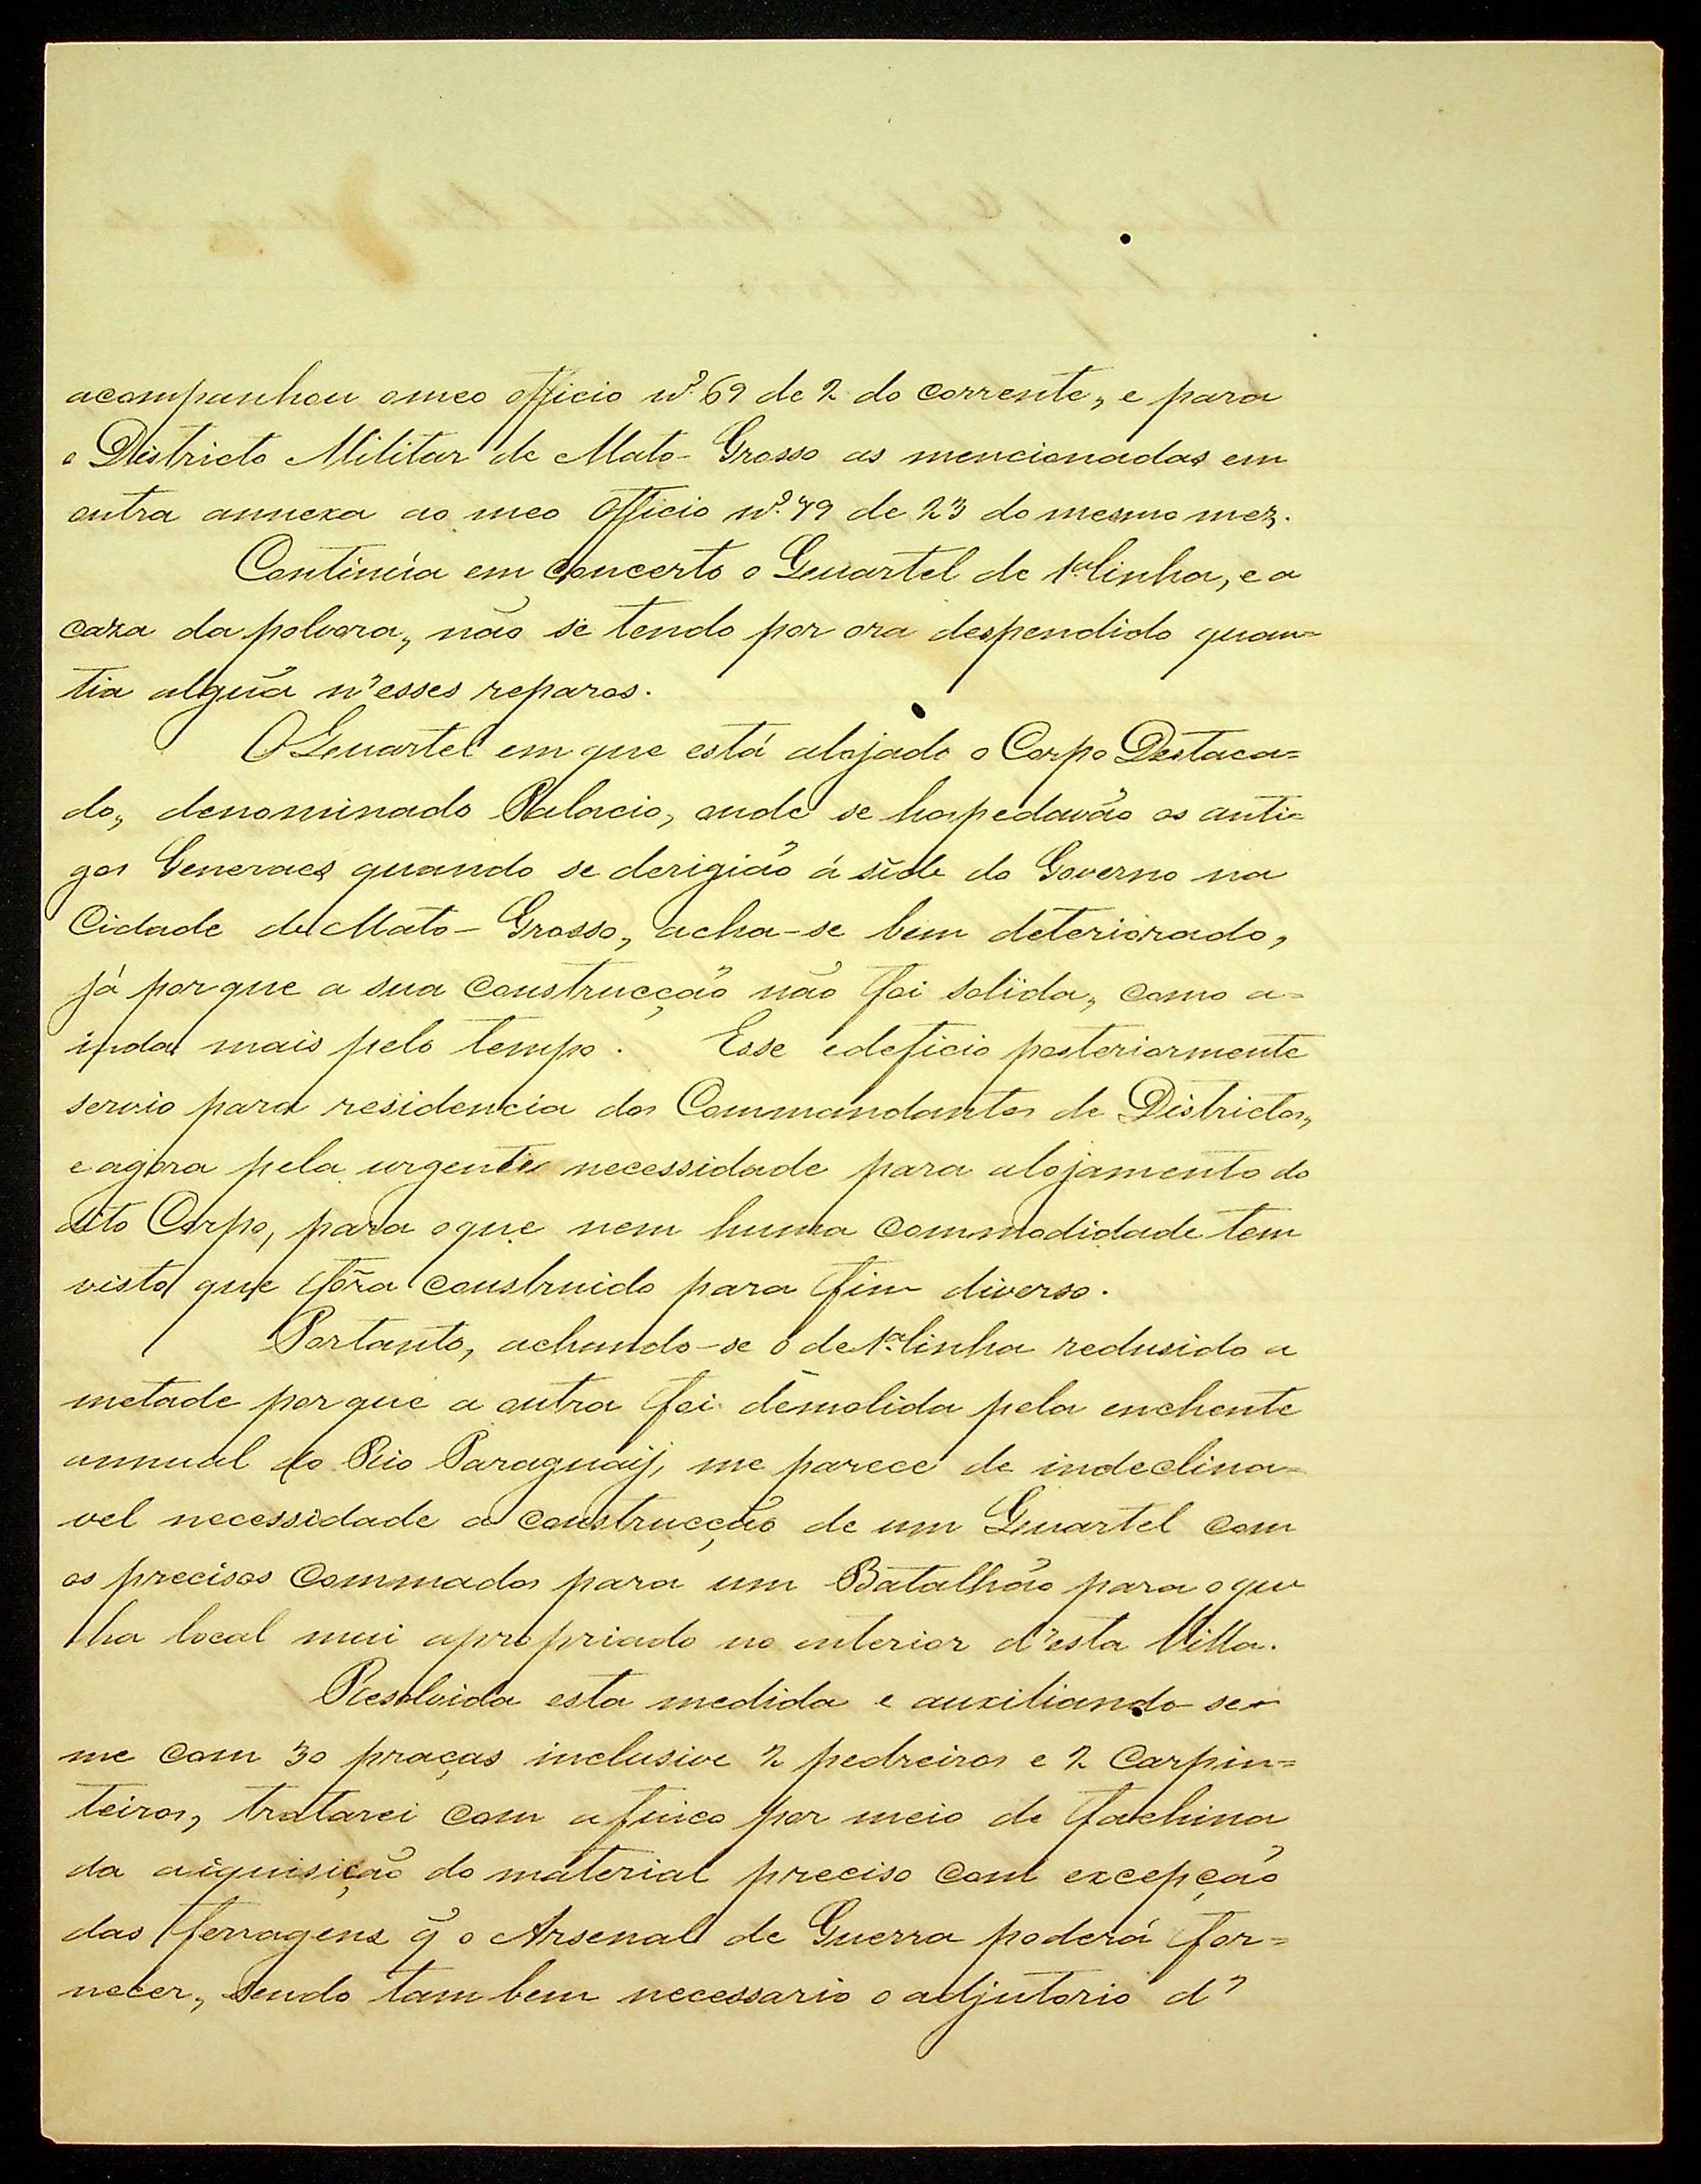 acompanhou o meo officio nº 69 de 2 do corrente, e para
o Districto Militar de Mato-Grosso as mencionadas em
outra annexa ao meo Officio nº 79 de 23 do mesmo mez.
Continúa em concerto o Quartel de 1ª linha, e a
caza da polvora, não se tendo por ora despendido quan=
tia algũa n'esses reparos.
O Quartel em que está alojado o Corpo Destaca=
do, denominado Palacio, onde se hospedavão os anti=
gos Generaes quando se derigião á séde do Governo na
Cidade de Mato-Grosso, acha-se bem deteriorado,
já porque a sua construcção não foi solida, como a=
inda mais pelo tempo. Esse edeficio posteriormente
servio para residencia dos Commandantes de Districtos,
e agora pela urgente necessidade para alojamento do
dito Corpo, para o que nem huma commodidade tem
visto que fôra construido para fim diverso.
Portanto, achando-se o de 1ª linha redusido a
metade porque a outra foi demolida pela enchente
annual do Rio Paraguaÿ, me parece de indeclina=
vel necessidade a construcção de um Quartel com
os precisos commodos para um Batalhão para o que
ha local mui apropriado no enterior d'esta Villa.
Resolvida esta medida e auxiliando-se-
me com 30 praças inclusive 2 pedreiros e 2 Carpin=
teiros, tratarei com afinco por meio de fachina
da aiquisição do material preciso com excepção
das ferragens q̃ o Arsenal de Guerra poderá for=
necer, sendo tambem necessario o adjutorio d'